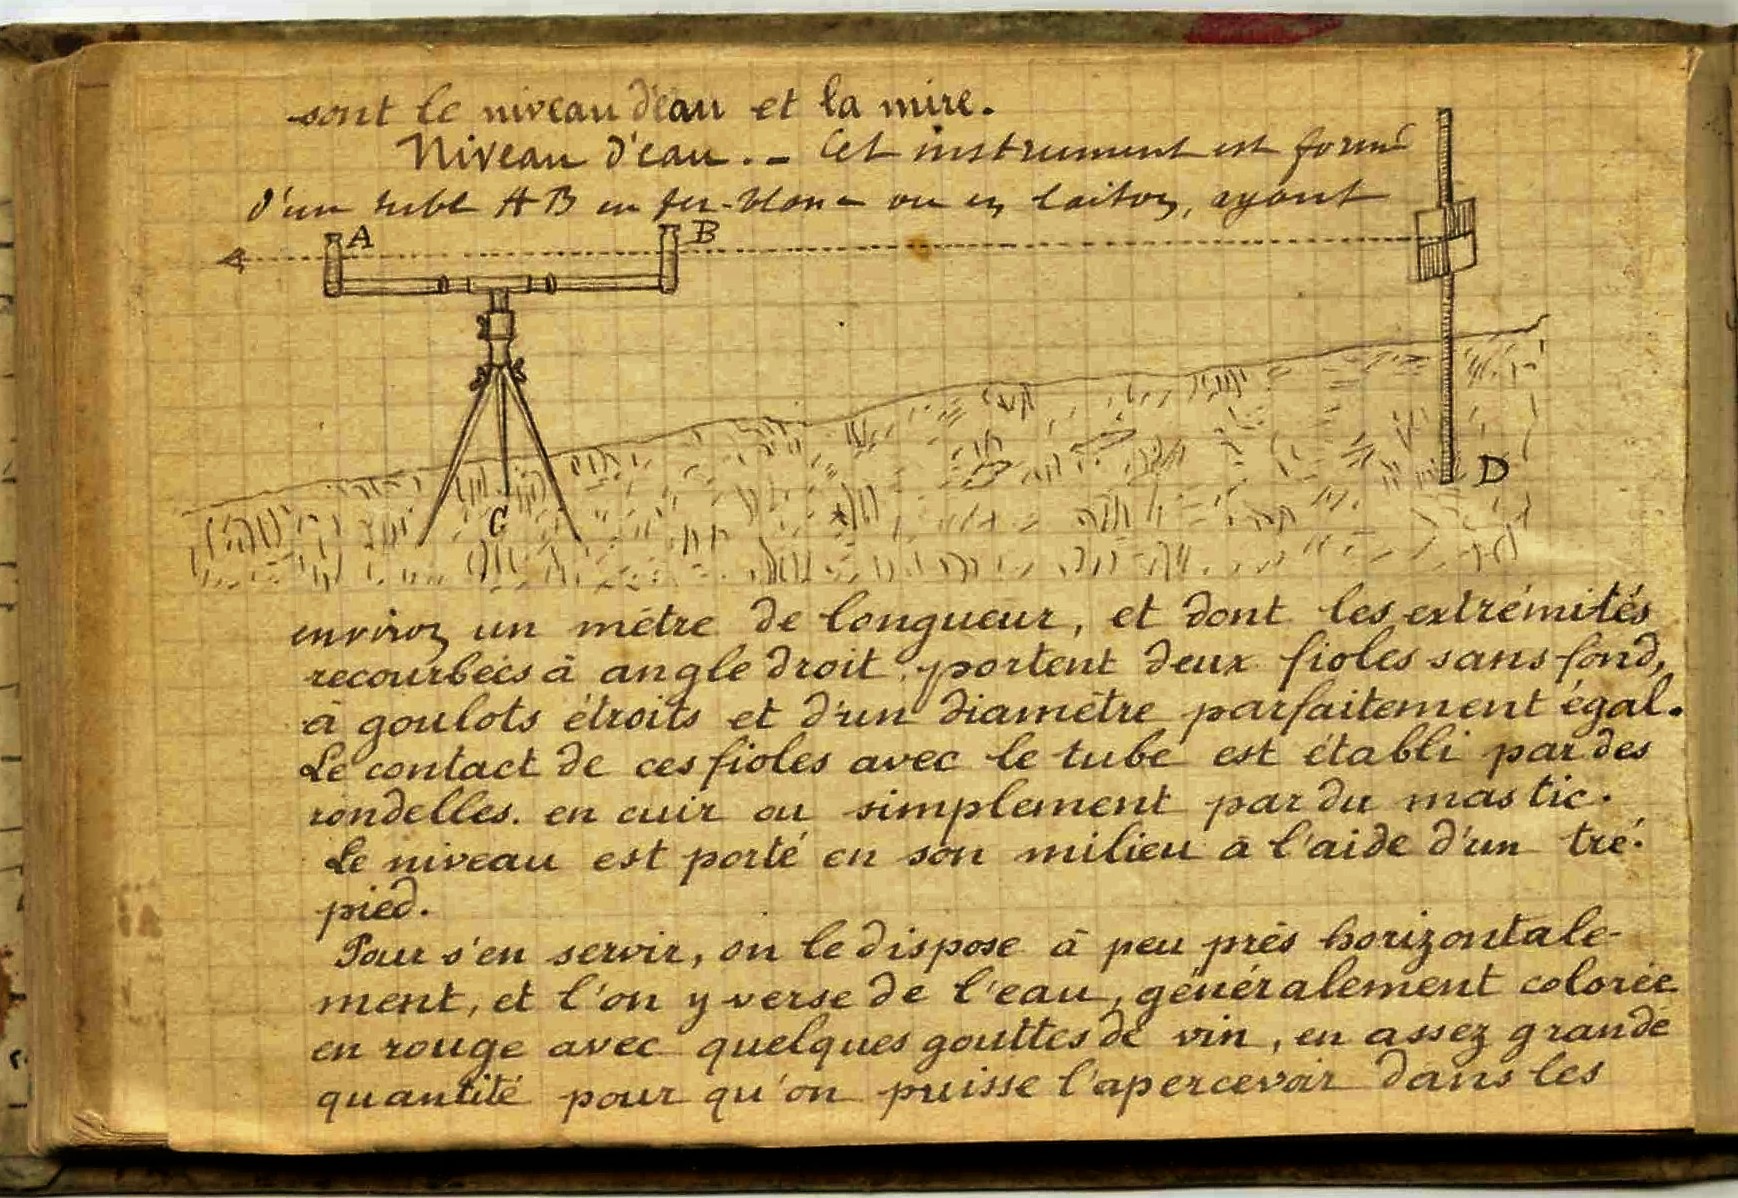 sont le niveau d'eau et la mire.
Niveau d'eau. — Cet instrument est formé
d'un tube AB en fer-blanc ou en laiton, ayant
A
B
D
C
environ un mètre de longueur, et dont les extrémités
recourbées à angle droit portent deux fioles sans fond,
à goulots étroits et d'un diamètre parfaitement égal.
Le contact de ces fioles avec le tube est établi par des
rondelles. en cuir ou simplement par du mastic.
Le niveau est porté en son milieu à l'aide d'un tré-
pied.
Pour s'en servir, on le dispose à peu près horizontale-
ment, et l'on y verse de l'eau, généralement colorée
en rouge avec quelques gouttes de vin, en assez grande
quantité pour qu'on puisse l'apercevoir dans les